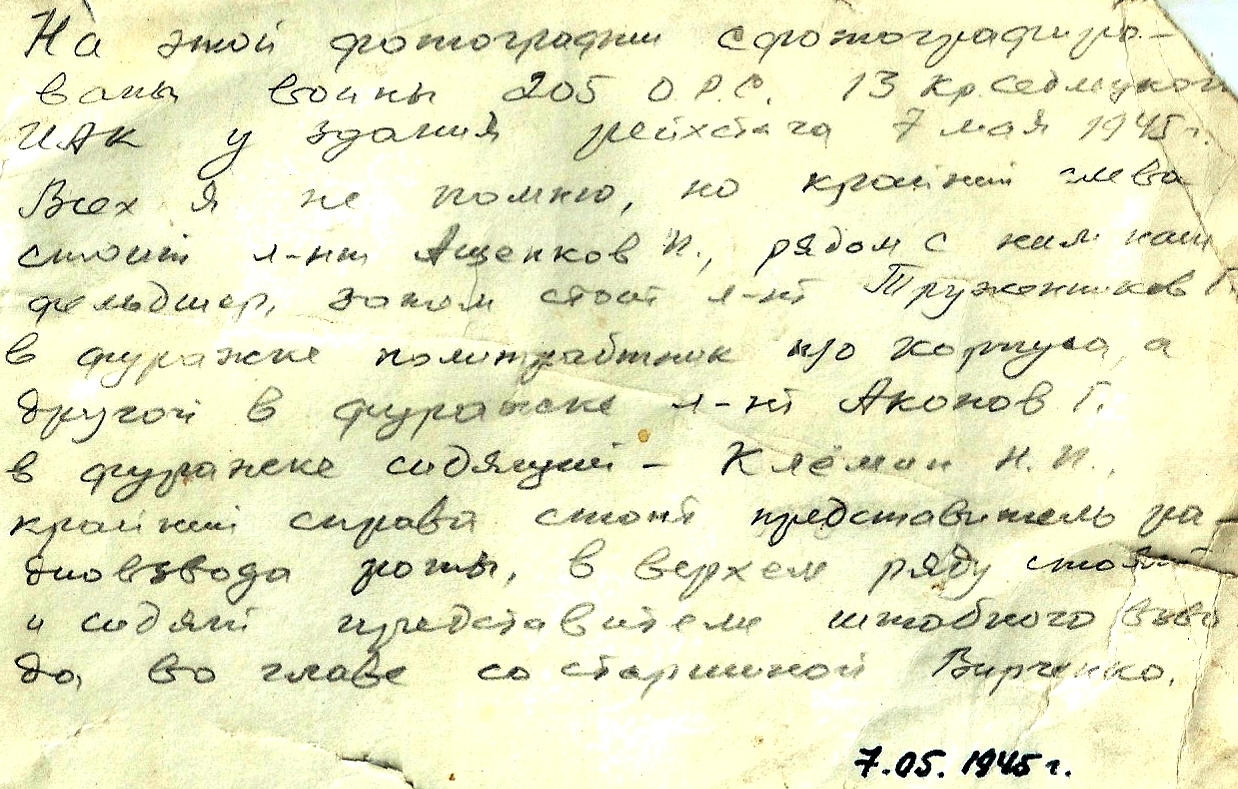 На этой фотографии сфотографиро-
ваны воины 205 О.Р.С. 13 Кр.Седлецкой
ИАК у здания рейхстага 7 мая 1945 г.
Всех я не помню, но крайний слева
стоит л-нт Ащепков И., рядом с ним наш
фельдшер, затем стоит л-нт Тружеников Г.
в фуражке политработник п/о корпуса, а
другой в фуражке л-нт Акопов Г.
в фуражке сидящий - Клёмин Н.И.,
крайний справа стоит представитель ра-
диовзвода роты, в верхем ряду стоят
и сидят представители штабного взво
да, во главе со старшиной Вирченко.
7.05.1945 г.